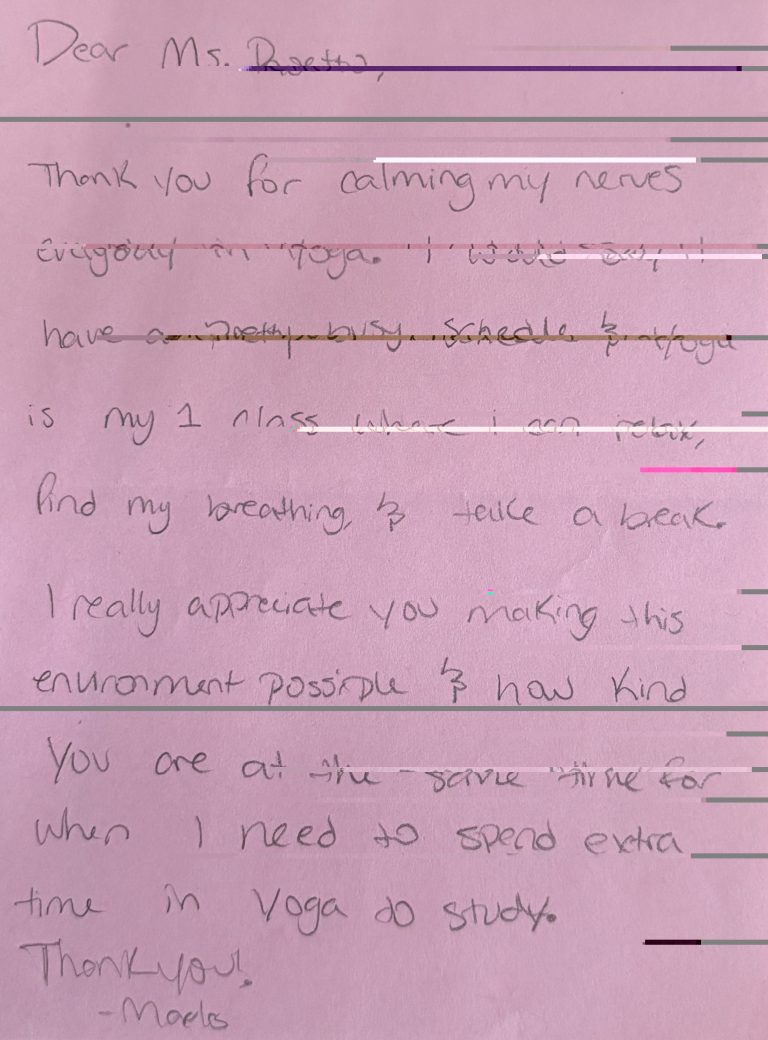 Dear Ms.
Thank you for calming my nerves
everyday in yoga. I would say I
have a pretty busy schedule & yoga
is my 1 class where i can relax,
find my breathing, & take a break.
I really appreciate you making this
environment possible & how kind
you are at the same time for
when I need to spend extra
time in Yoga to study.
Thank you!